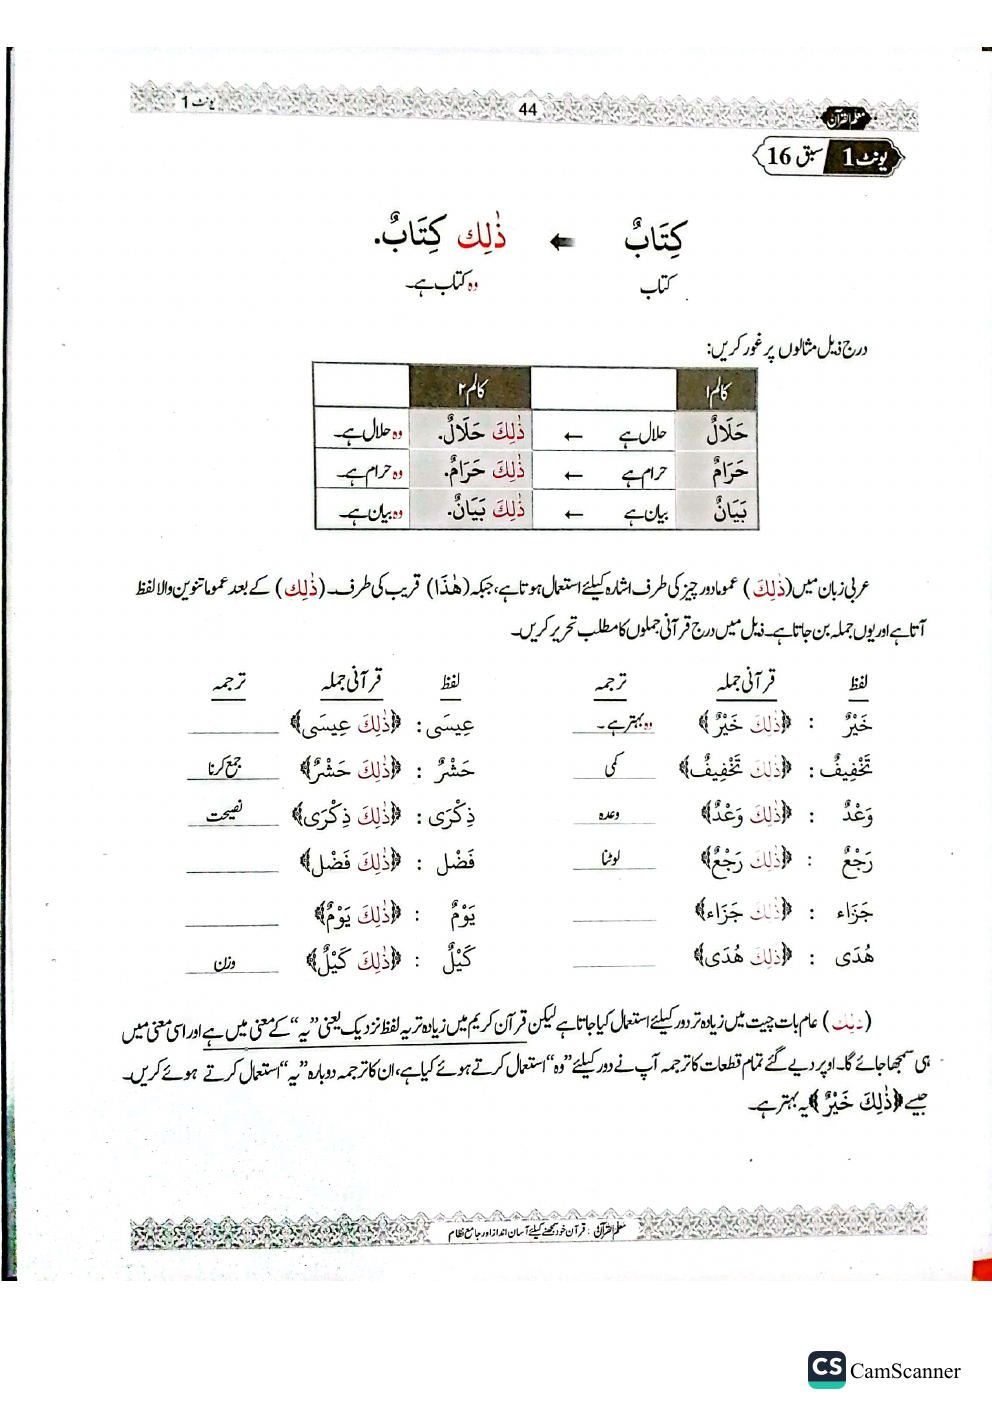 معلم القرآن 44 یونٹ 1
یونٹ 1 سبق 16
كِتَابٌ ← ذٰلِكَ كِتَابٌ.
کتاب وہ کتاب ہے۔
درج ذیل مثالوں پر غور کریں:
کالم ۱ کالم ۲
حَلَالٌ حلال ہے ← ذٰلِكَ حَلَالٌ. وہ حلال ہے۔
حَرَامٌ حرام ہے ← ذٰلِكَ حَرَامٌ. وہ حرام ہے۔
بَيَانٌ بیان ہے ← ذٰلِكَ بَيَانٌ. وہ بیان ہے۔
عربی زبان میں (ذٰلِكَ) عموما دور چیز کی طرف اشارہ کیلئے استعمال ہوتا ہے، جبکہ (هٰذَا) قریب کی طرف۔ (ذٰلِكَ) کے بعد عموما تنوین والا لفظ
آتا ہے اور یوں جملہ بن جاتا ہے۔ ذیل میں درج قرآنی جملوں کا مطلب تحریر کریں۔
لفظ قرآنی جملہ ترجمہ لفظ قرآنی جملہ ترجمہ
خَيْرٌ : ﴿ذٰلِكَ خَيْرٌ﴾ وہ بہتر ہے۔ عِيسَى : ﴿ذٰلِكَ عِيسَى﴾
تَخْفِيفٌ : ﴿ذٰلِكَ تَخْفِيفٌ﴾ کمی حَشْرٌ : ﴿ذٰلِكَ حَشْرٌ﴾ جمع کرنا
وَعْدٌ : ﴿ذٰلِكَ وَعْدٌ﴾ وعدہ ذِكْرَى : ﴿ذٰلِكَ ذِكْرَى﴾ نصیحت
رَجْعٌ : ﴿ذٰلِكَ رَجْعٌ﴾ لوٹنا فَضْل : ﴿ذٰلِكَ فَضْل﴾
جَزَاء : ﴿ذٰلِكَ جَزَاء﴾ يَوْمٌ : ﴿ذٰلِكَ يَوْمٌ﴾
هُدَى : ﴿ذٰلِكَ هُدَى﴾ كَيْلٌ : ﴿ذٰلِكَ كَيْلٌ﴾ وزن
(ذٰلِكَ) عام بات چیت میں زیادہ تر دور کیلئے استعمال کیا جاتا ہے لیکن قرآن کریم میں زیادہ تر یہ لفظ نزدیک یعنی ”یہ“ کے معنی میں ہے اور اسی معنی میں
ہی سمجھا جائے گا۔ اوپر دیے گئے تمام قطعات کا ترجمہ آپ نے دور کیلئے ”وہ“ استعمال کرتے ہوئے کیا ہے، ان کا ترجمہ دوبارہ ”یہ“ استعمال کرتے ہوئے کریں۔
جیسے ﴿ذٰلِكَ خَيْرٌ﴾ یہ بہتر ہے۔
معلم القرآن : قرآن خود سمجھنے کیلئے آسان انداز اور جامع نظام
CS CamScanner